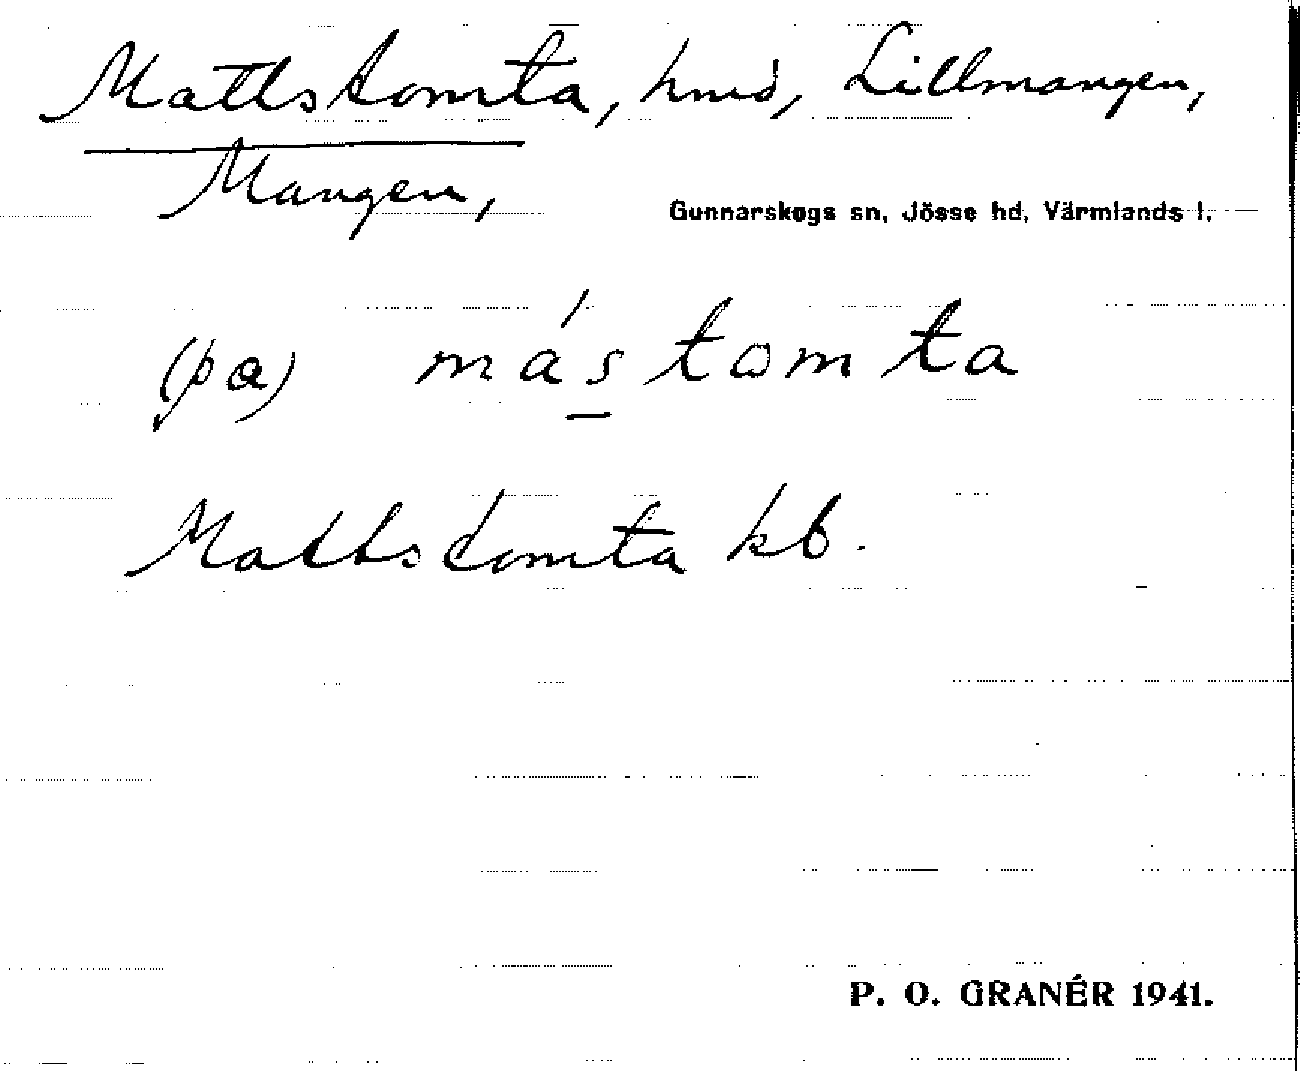 Mattstomta, hmd, Lillmangen,
Mangen,
Gunnarskogs sn, Jösse hd, Värmlands l.
(pa) mástomta
Mattstomta kb.
P. O. GRANÉR 1941.